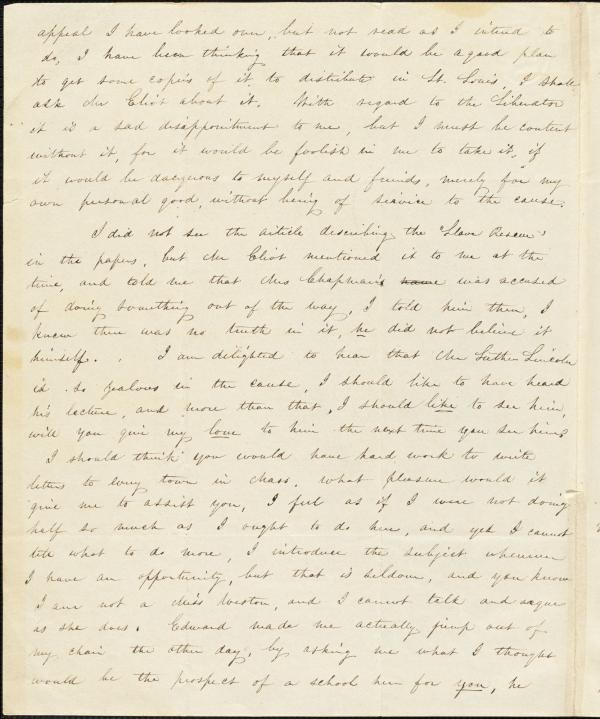 appeal I have looked over, but not read as I intend to
do, I have been thinking that it would be a good plan
to get some copies of it to distribute in St. Louis, I shall
ask Mr Eliot about it. With regard to the Liberator
it is a sad disappointment to me, but I must be content
without it, for it would be foolish in me to take it, if
it would be dangerous to myself and friends, merely for my
own personal good, without being of service to the cause.
I did not see the article describing the "Slave Rescue"
in the papers, but Mr Eliot mentioned it to me at the
time, and told me that Mrs Chapman's name was accused
of doing something out of the way, I told him then, I
knew there was no truth in it, he did not believe it
himself. . I am delighted to hear that Mr Luther Lincoln
is so zealous in the cause, I should like to have heard
his lecture, and more than that, I should like to see him,
will you give my love to him the next time you see him?
I should think you would have hard work to write
letters to every town in Mass. What pleasure would it
give me to assist you, I feel as if I were not doing
half so much as I ought to do here, and yet I cannot
tell what to do more, I introduce the subject whenever
I have an opportunity, but that is seldom, and you know
I am not a Miss Weston, and I cannot talk and argue
as she does. Edward made me actually jump out of
my chair the other day, by asking me what I thought
would be the prospect of a school here for you, he